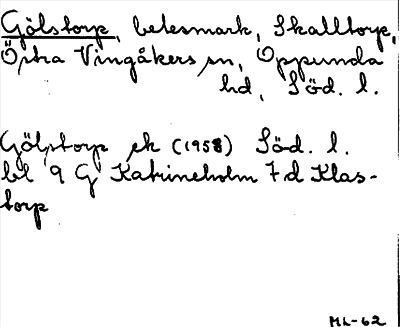 Gölstorp, betesmark, Skalltorp,
Östra Vingåkers sn, Oppunda
hd, Söd. l.
Gölstorp ek (1958) Söd. l.
bl 9 G Katrineholm 7d Klas-
torp
ML-62